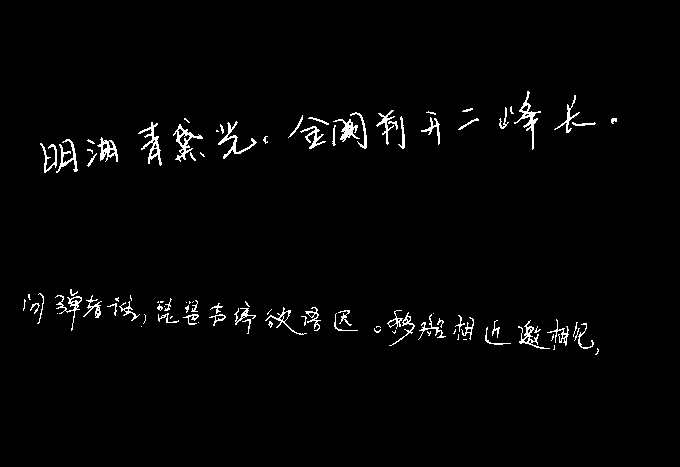 明湖青黛光。金阙前开二峰长。
问弹者谁，琵琶声停欲语迟。移船相近邀相见，